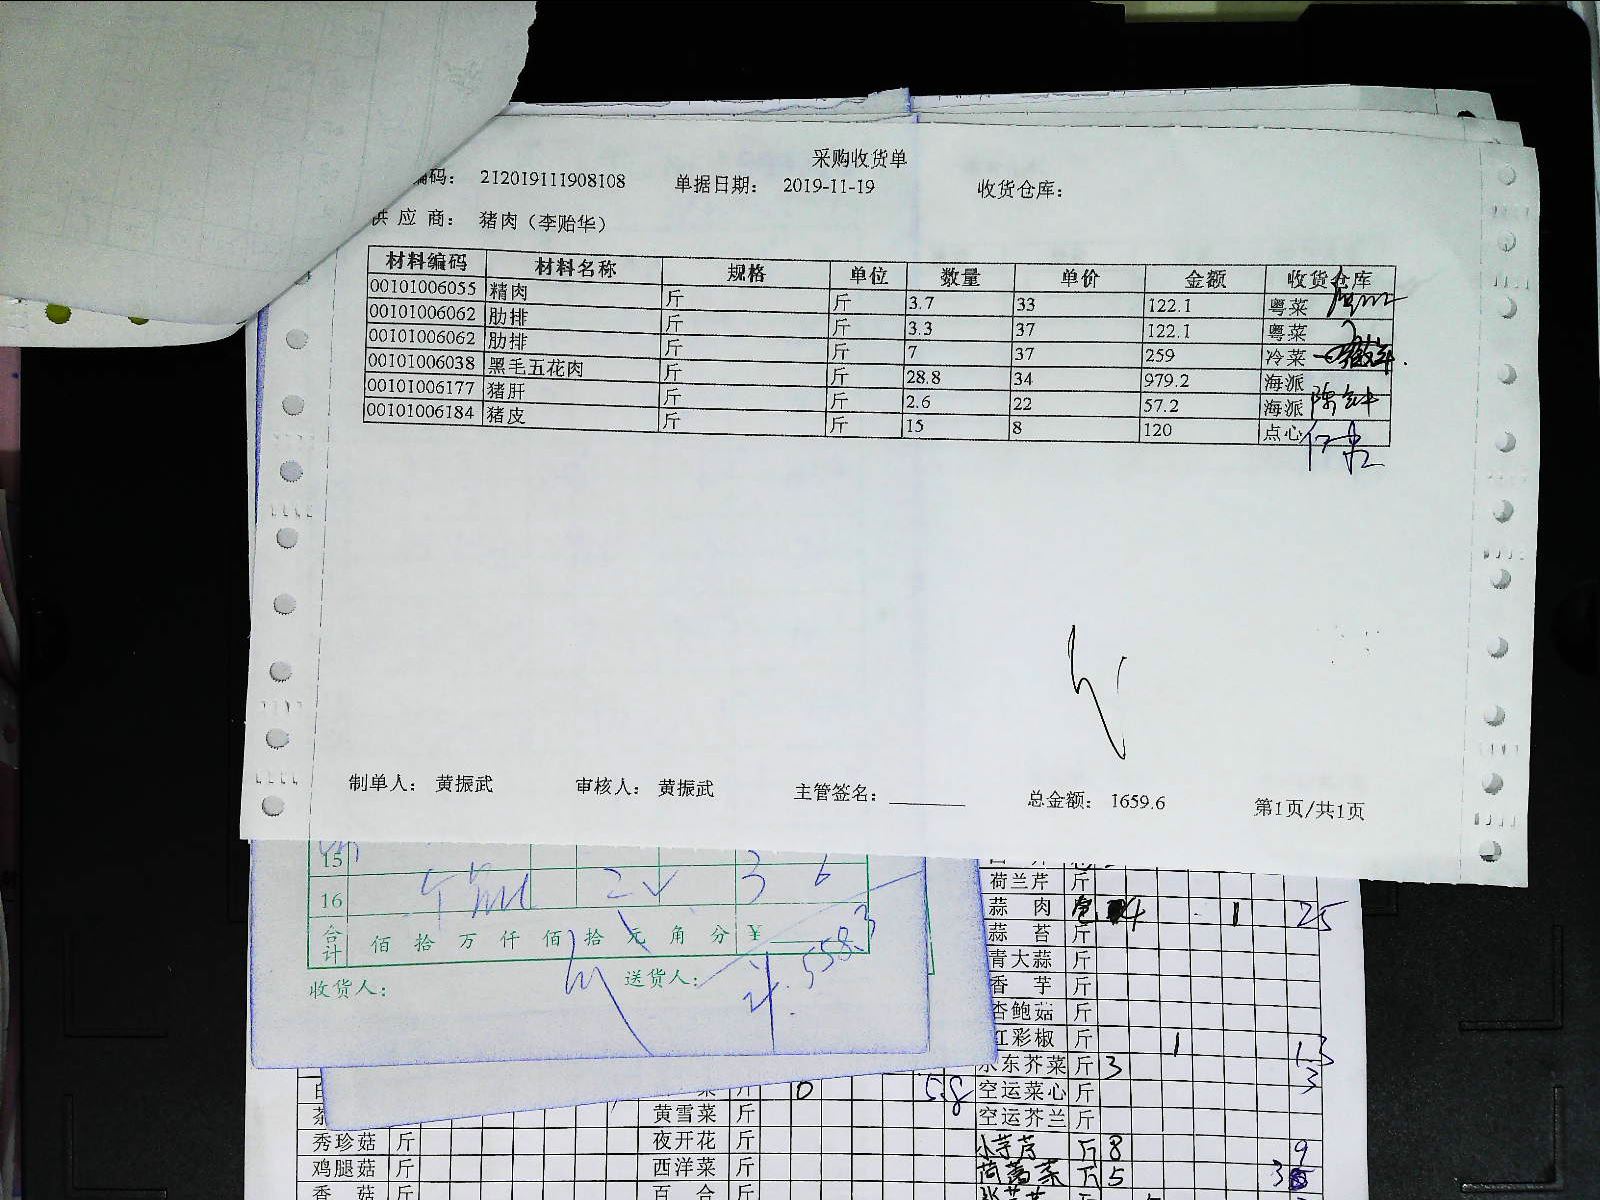 采购收货单
编码： 212019111908108 单据日期： 2019-11-19 收货仓库：
供 应 商： 猪肉（李贻华）
材料编码 材料名称 规格 单位 数量 单价 金额 收货仓库
00101006055 精肉 斤 斤 3.7 33 122.1 粤菜
00101006062 肋排 斤 斤 3.3 37 122.1 粤菜
00101006062 肋排 斤 斤 7 37 259 冷菜
00101006038 黑毛五花肉 斤 斤 28.8 34 979.2 海派
00101006177 猪肝 斤 斤 2.6 22 57.2 海派
00101006184 猪皮 斤 斤 15 8 120 点心
制单人： 黄振武 审核人： 黄振武 主管签名： 总金额： 1659.6 第1页/共1页
15 3 6
16
合计 佰 拾 万 仟 佰 拾 元 角 分 ￥ 558.3
收货人： 送货人：
荷兰芹 斤
蒜 肉 4 1 25
蒜 苔 斤
青大蒜 斤
香 芋 斤
杏鲍菇 斤
红彩椒 斤 1 13
水东芥菜 斤 3 3
菜 斤 0 58 空运菜心 斤
黄雪菜 斤 空运芥兰 斤
秀珍菇 斤 夜开花 斤 小芋艿 斤 8 9
鸡腿菇 斤 西洋菜 斤 茼蒿菜 斤 5
香 菇 斤 百 合 斤